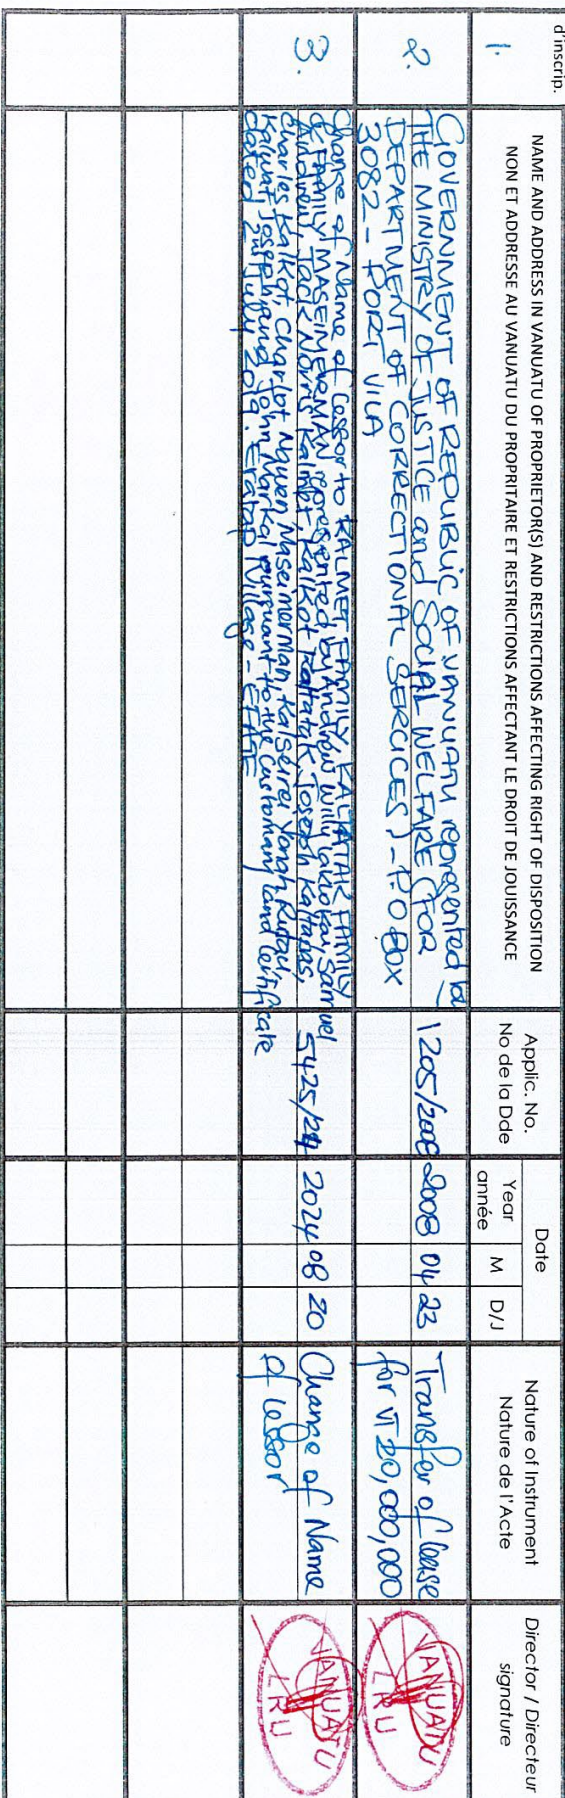 d'inscrip.
NAME AND ADDRESS IN VANUATU OF PROPRIETOR(S) AND RESTRICTIONS AFFECTING RIGHT OF DISPOSITION
NON ET ADDRESSE AU VANUATU DU PROPRITAIRE ET RESTRICTIONS AFFECTANT LE DROIT DE JOUISSANCE
Applic. No.
No de la Dde
Date
Year
année
M
D/J
Nature of Instrument
Nature de l'Acte
Director / Directeur
signature
1.
2.
GOVERNMENT OF REPUBLIC OF VANUATU represented by
THE MINISTRY OF JUSTICE and SOCIAL WELFARE (FOR
DEPARTMENT OF CORRECTIONAL SERVICES) - P.O BOX
3082 - PORT VILA
1205/2008
2008 04 23
Transfer of lease
for VT 20,000,000
VANUATU
LRU
3.
Change of Name of Lessor to KALMET FAMILY, KALTATAK FAMILY
& FAMILY MASEIMERMAN represented by Andrew Willy Samuel
Andrew, Jack Norris Kalmet, Kalkot Kaltatak, Joseph
Charles Kalkot, Charlot Maseimerman, Kalserei Yonah
Joseph and John Markal pursuant to the Customary Land Certificate
dated 2nd July 2019. Eratap Village - EFATE
5425/24
2024 08 20
Change of Name
of Lessor
VANUATU
LRU